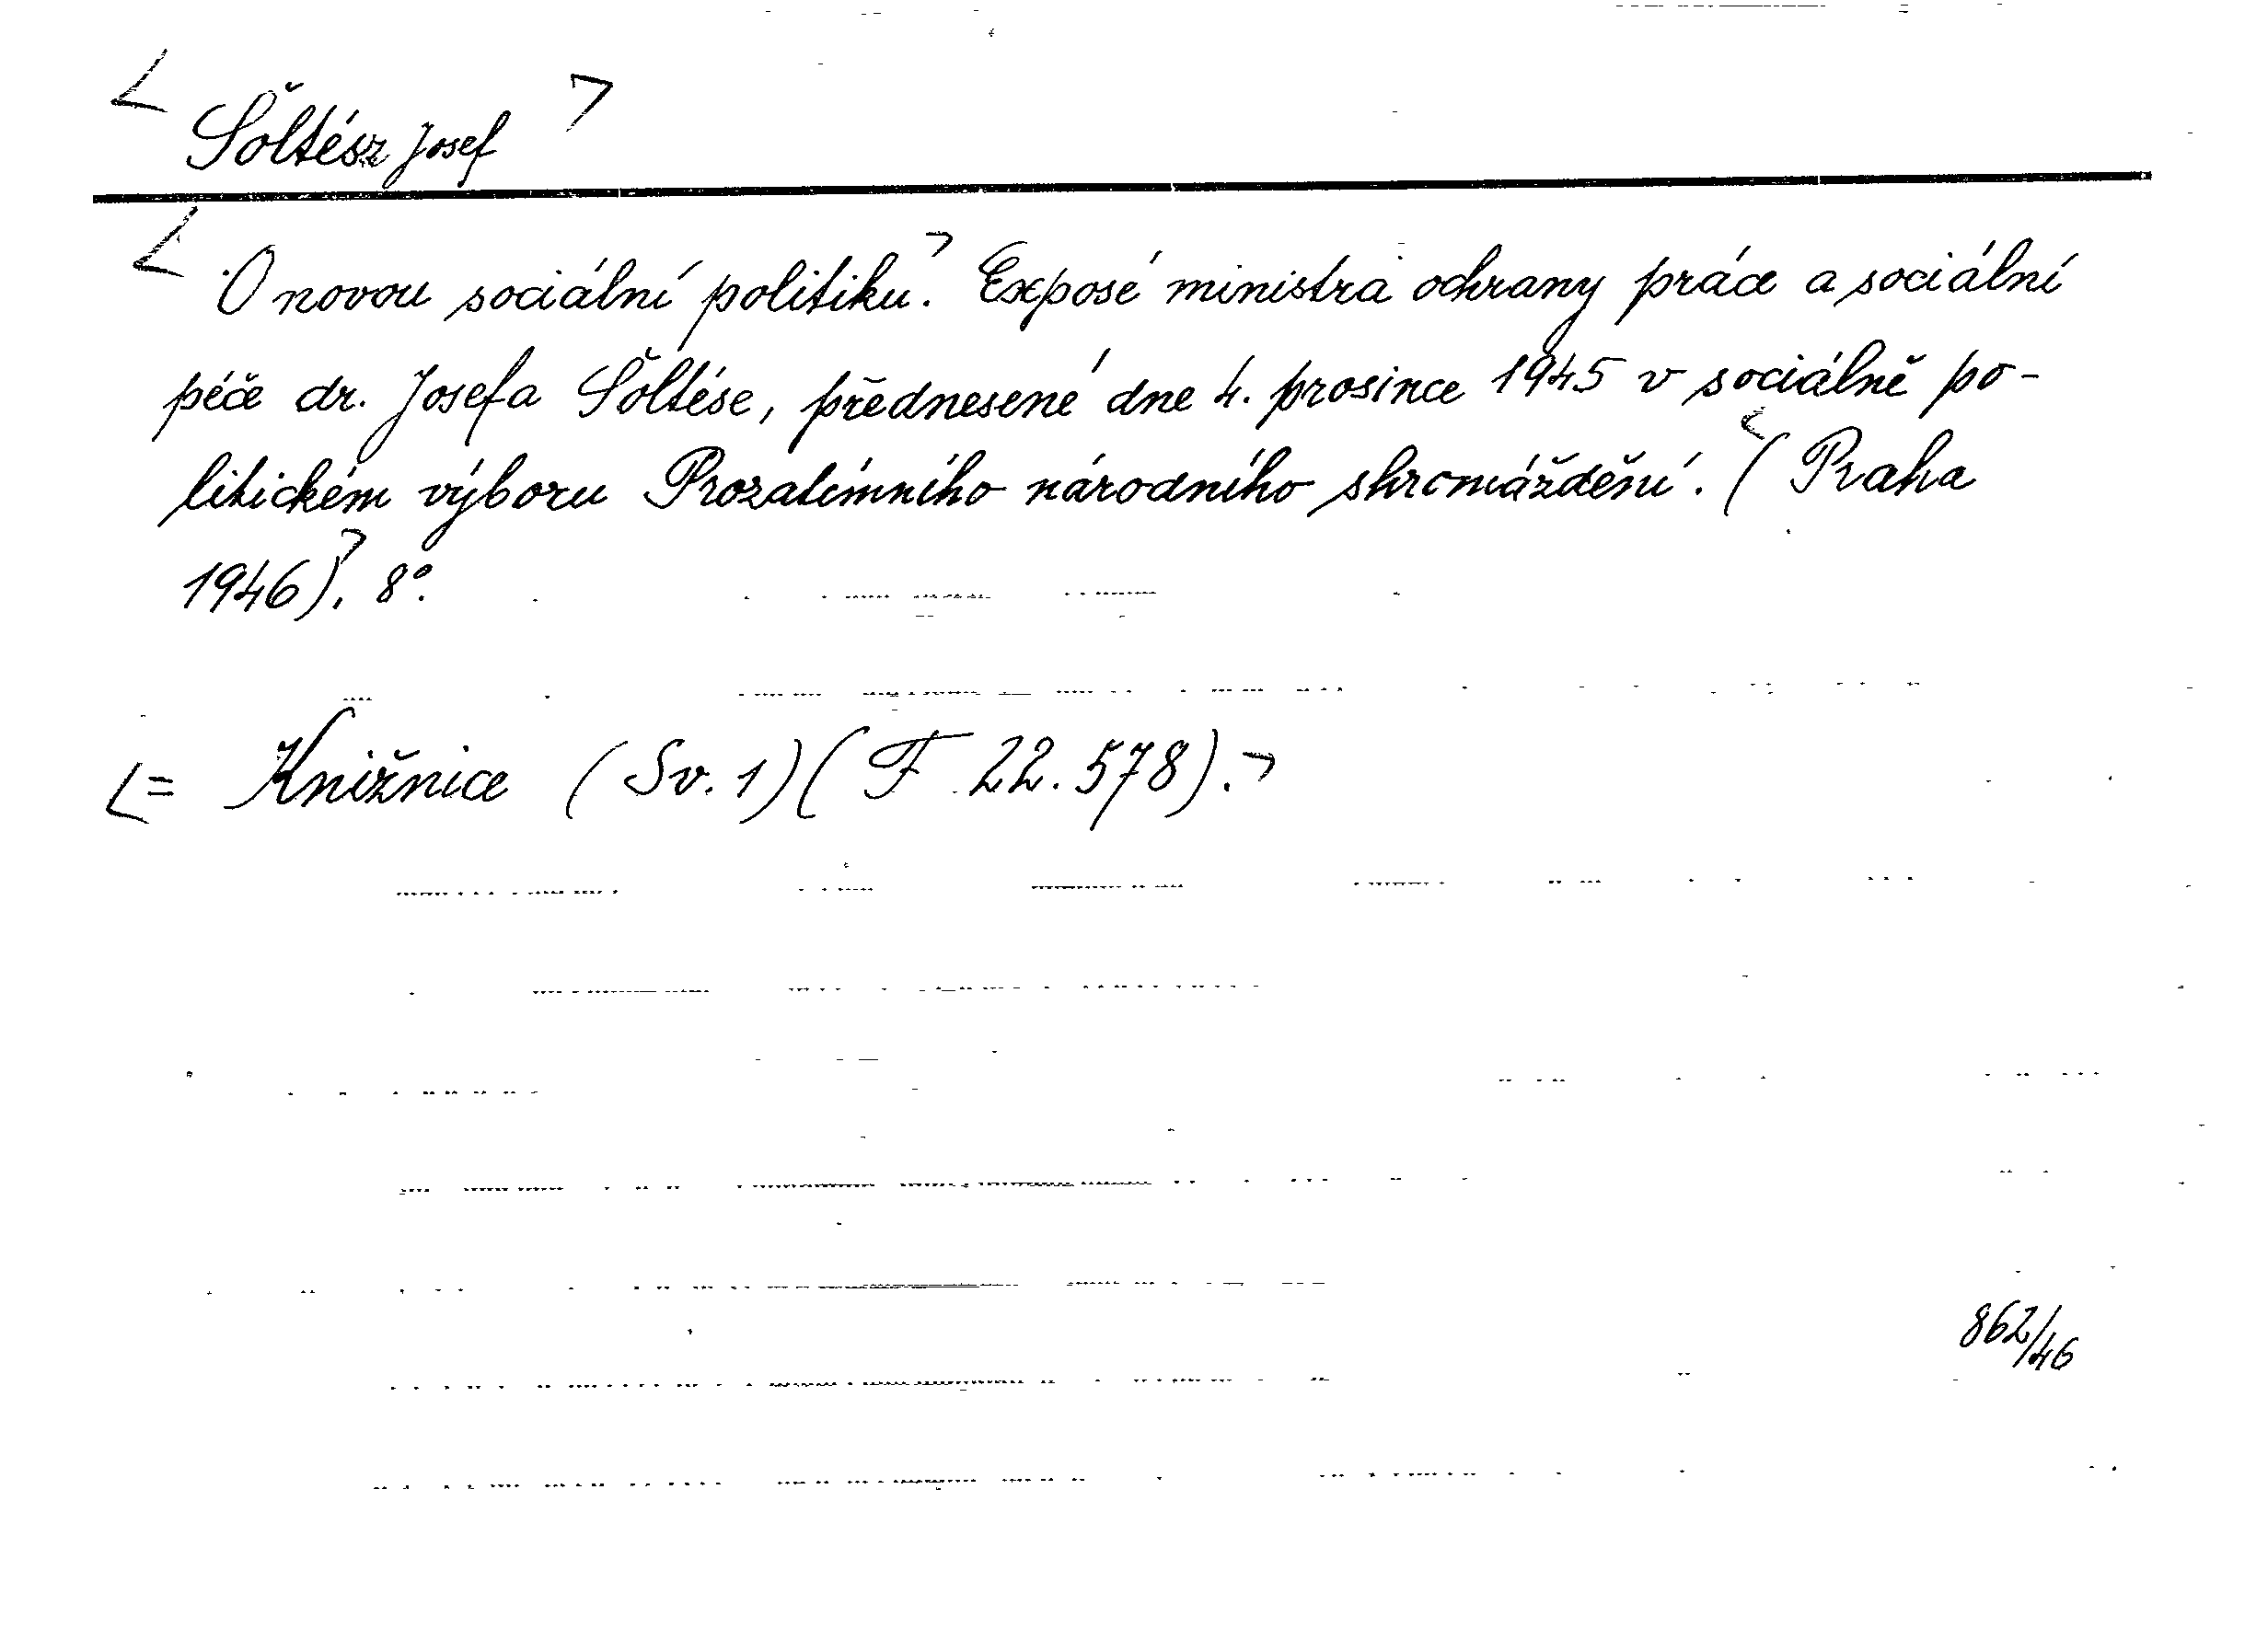 < Šoltész Josef >
< O novou sociální politiku.> Exposé ministra ochrany práce a sociální
péče dr. Josefa Šoltése, přednesené dne 4. prosince 1945 v sociálně po-
litickém výboru Prozatímního národního shromáždění. <( Praha
1946).> 8°.
<= Knižnice (Sv. 1) ( F 22.578).>
862/46